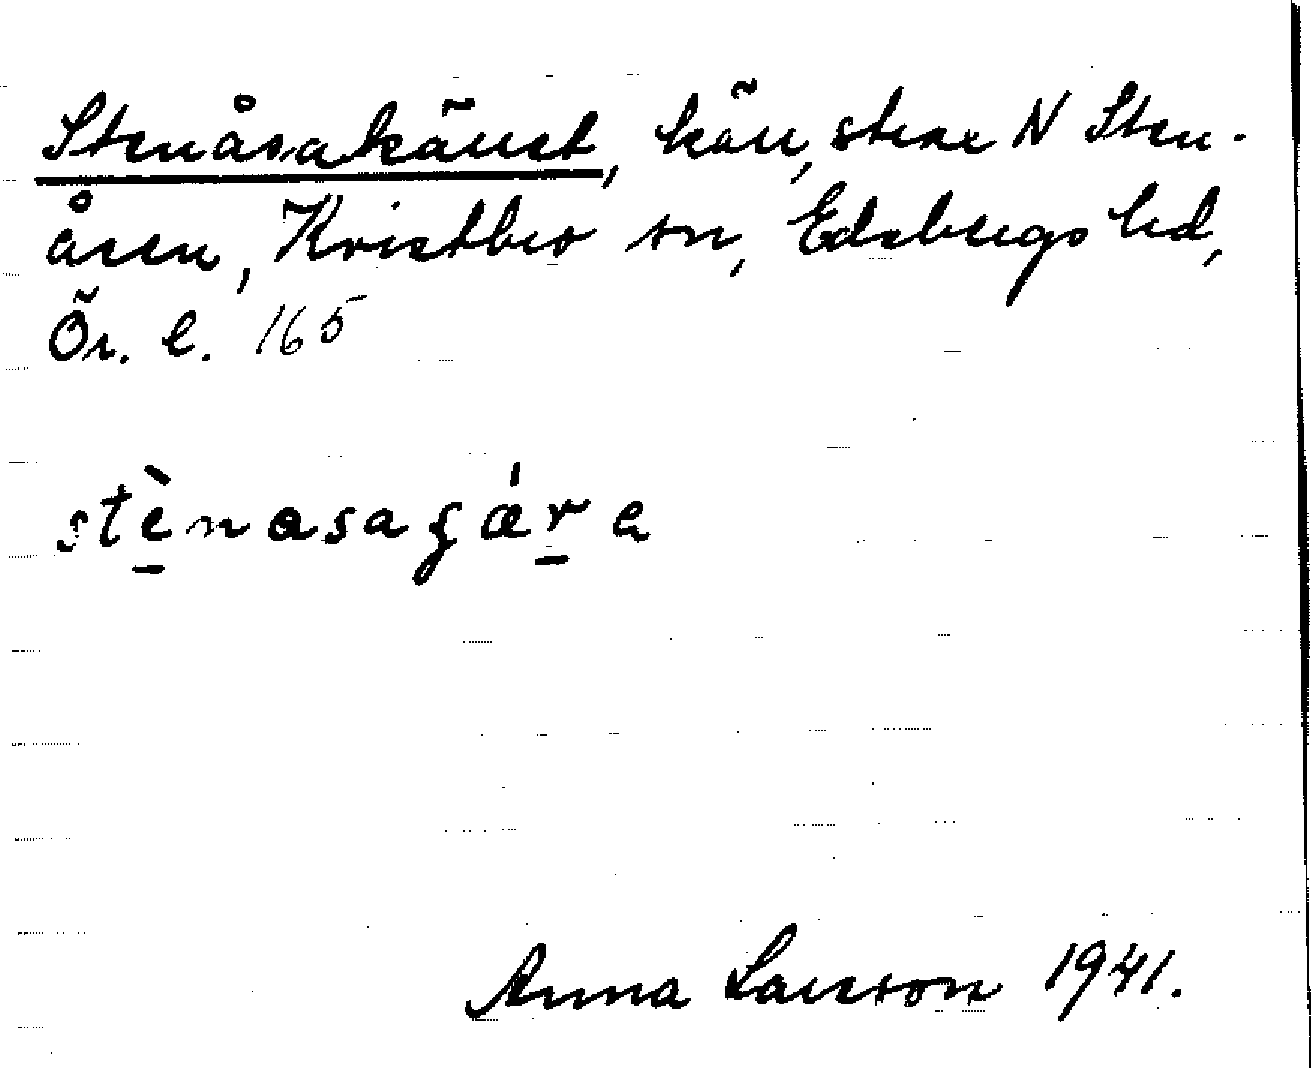 Stenåsakärret, kärr, strax N Sten-
åsen, Kvistbro sn, Edsbergs hd,
Ör. l. 165
stènasagára
Anna Larsson 1941.